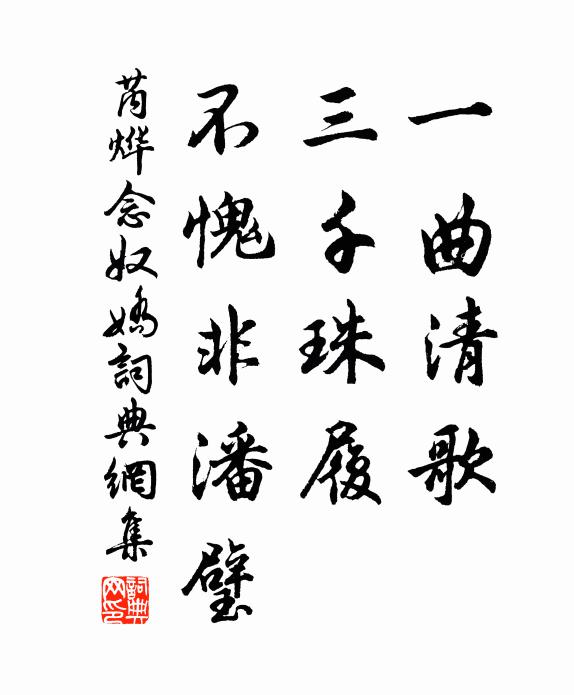 一曲清歌
三千珠履
不愧非潘璧
芮燁念奴嬌詞典網集
詞典网印